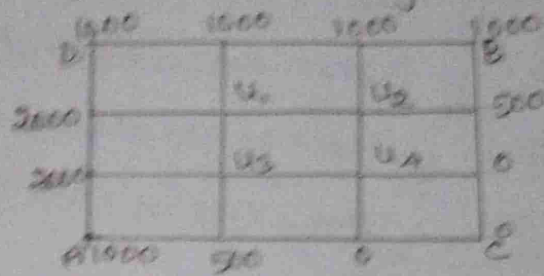 1000 1000 1000 1000
D B
U1 U2
2000 500
U3 U4 0
2000
A 1000 500 0 C 0